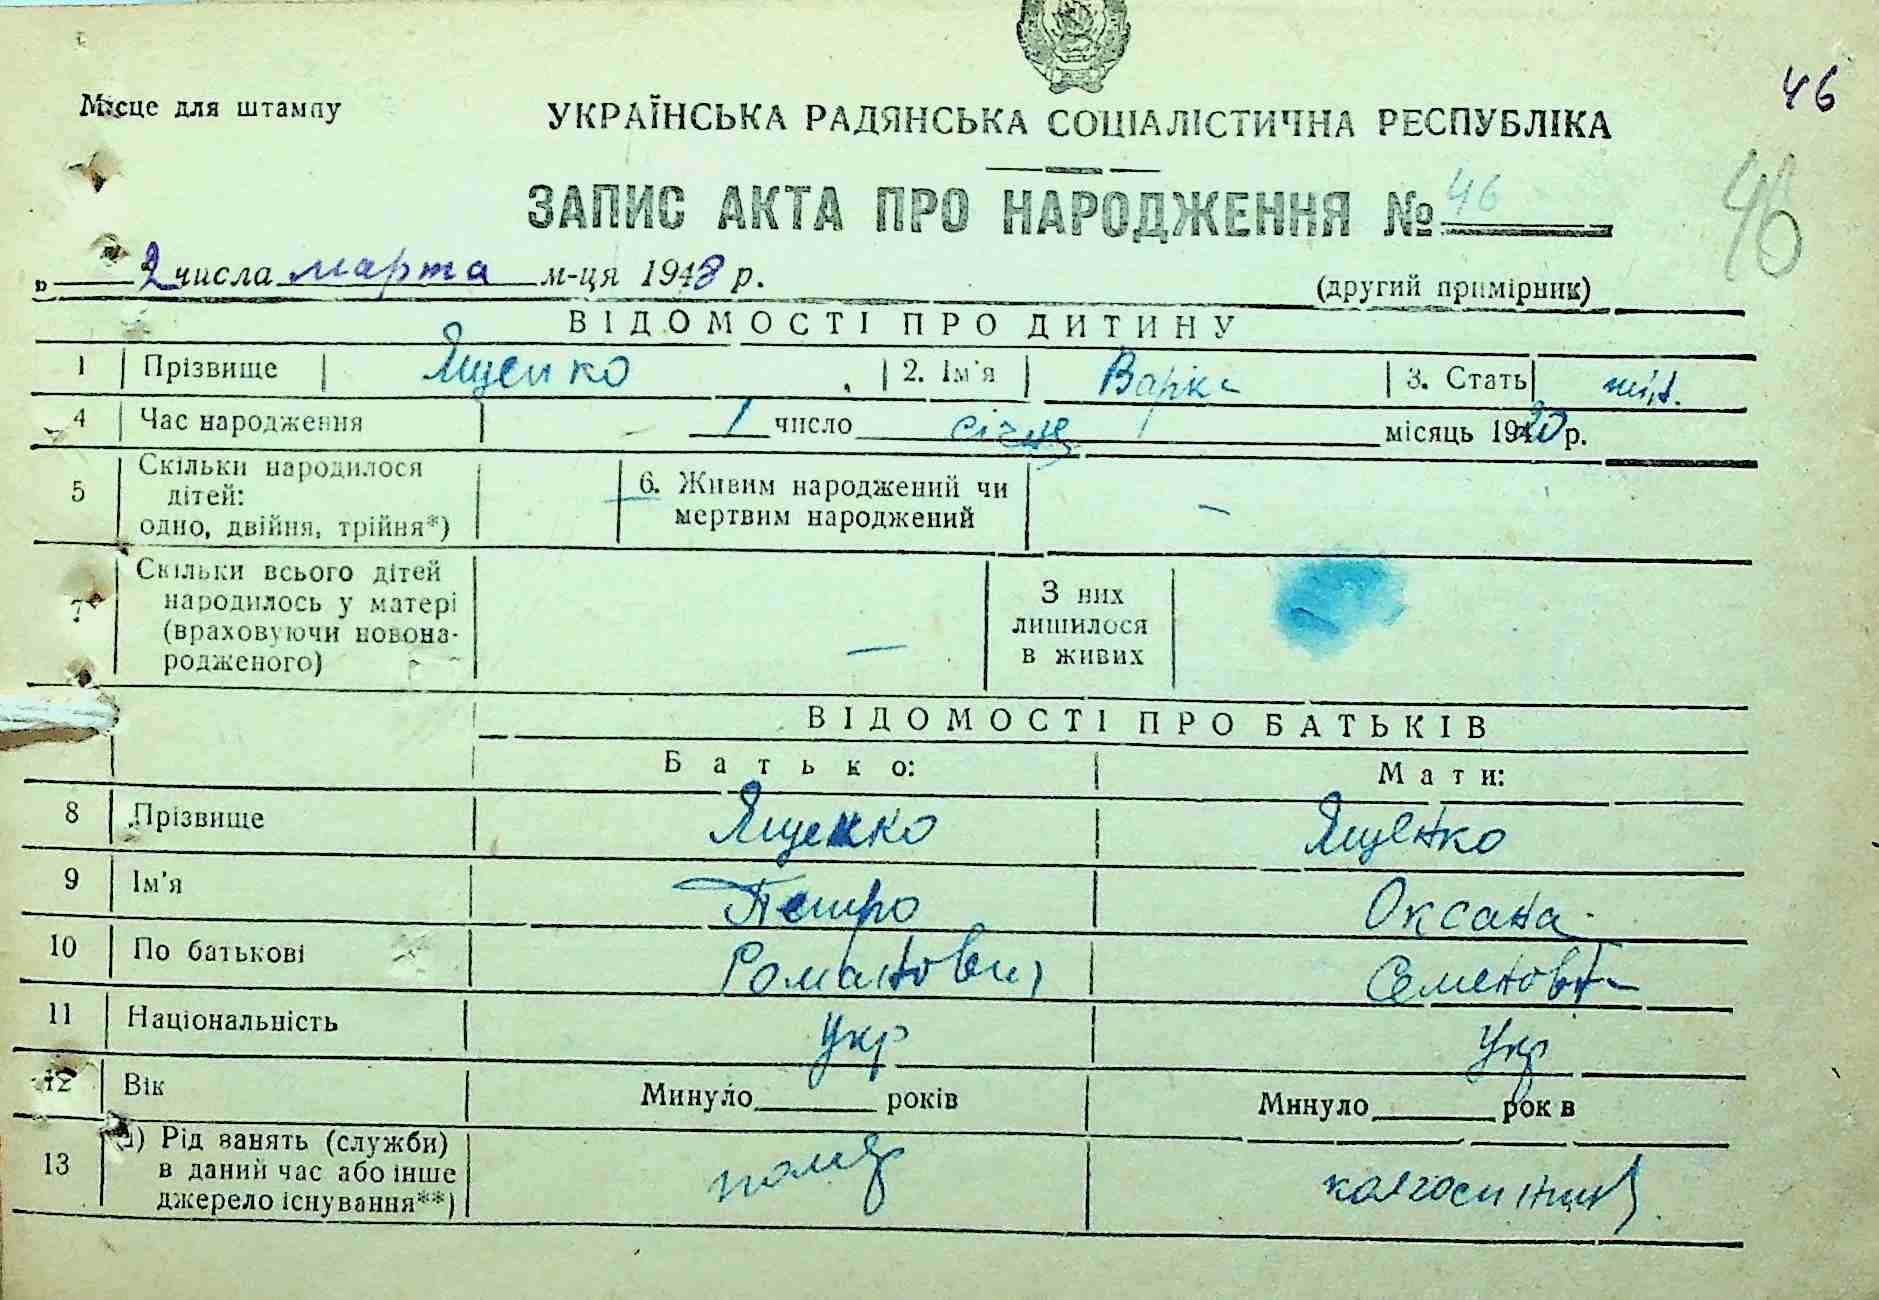 46
Місце для штампу
УКРАЇНСЬКА РАДЯНСЬКА СОЦІАЛІСТИЧНА РЕСПУБЛІКА
ЗАПИС АКТА ПРО НАРОДЖЕННЯ № 46
46
„ 2 числа марта м-ця 1948 р.
(другий примірник)
ВІДОМОСТІ ПРО ДИТИНУ
1 Прізвище Ященко 2. Ім'я Варка 3. Стать жін.
4 Час народження 1 число січня місяць 1920 р.
5 Скільки народилося дітей: одно, двійня, трійня*) 6. Живим народжений чи мертвим народжений —
7 Скільки всього дітей народилось у матері (враховуючи новонародженого) — З них лишилося в живих
ВІДОМОСТІ ПРО БАТЬКІВ
Батько: Мати:
8 Прізвище Ященко Ященко
9 Ім'я Петро Оксана
10 По батькові Романович Семеновна
11 Національність Укр Укр
12 Вік Минуло ______ років Минуло ______ рок в
13 а) Рід занять (служби) в даний час або інше джерело існування**) помер колгоспниця